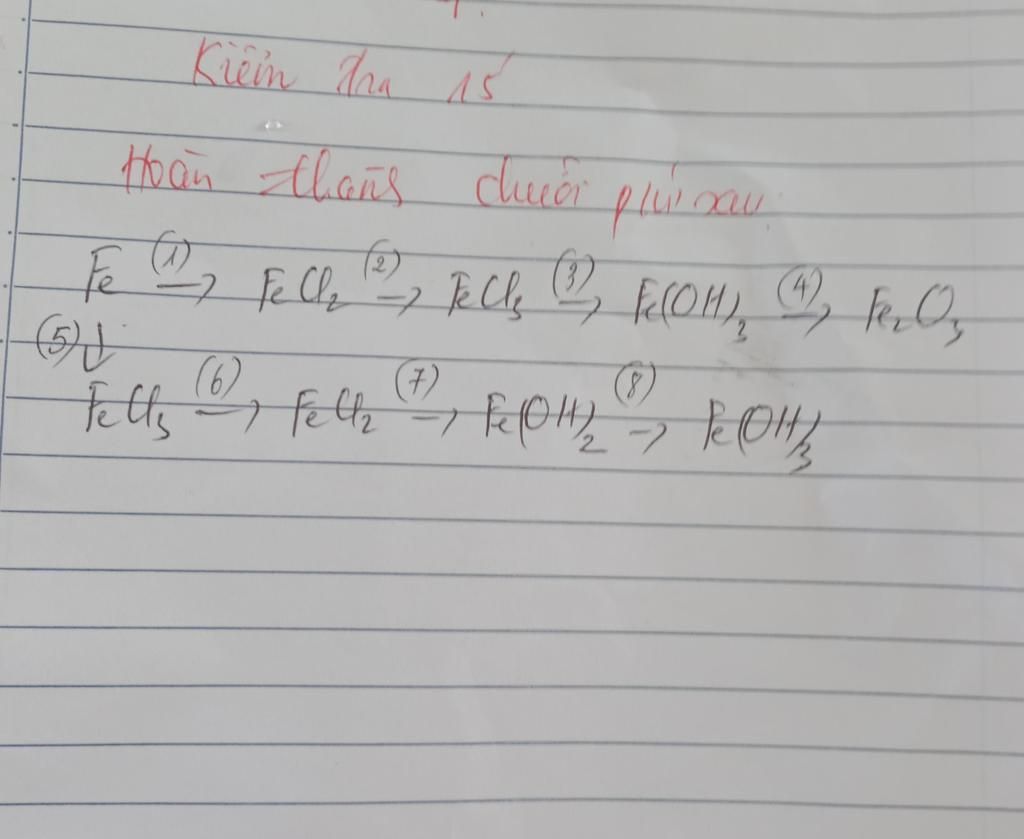 Kiểm tra 15'
Hoàn thành chuỗi pứ sau
Fe (1)→ FeCl₂ (2)→ FeCl₃ (3)→ Fe(OH)₃ (4)→ Fe₂O₃
(5)↓
FeCl₃ (6)→ FeCl₂ (7)→ Fe(OH)₂ (8)→ Fe(OH)₃